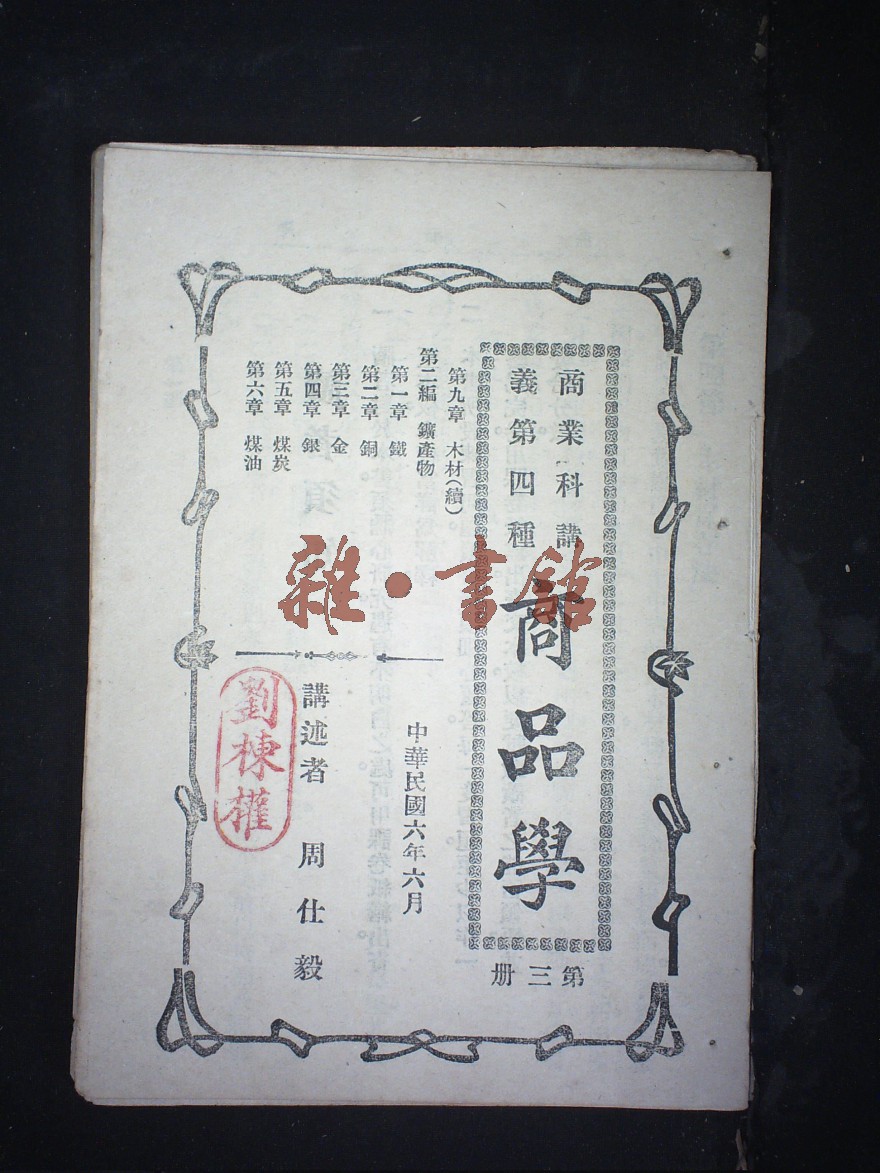 商業科講
義第四種
商品學
第三册
第九章 木材(續)
第二編 鑛產物
第一章 鐵
第二章 銅
第三章 金
第四章 銀
第五章 煤炭
第六章 煤油
中華民國六年六月
講述者 周仕毅
劉棟權
雜·書館